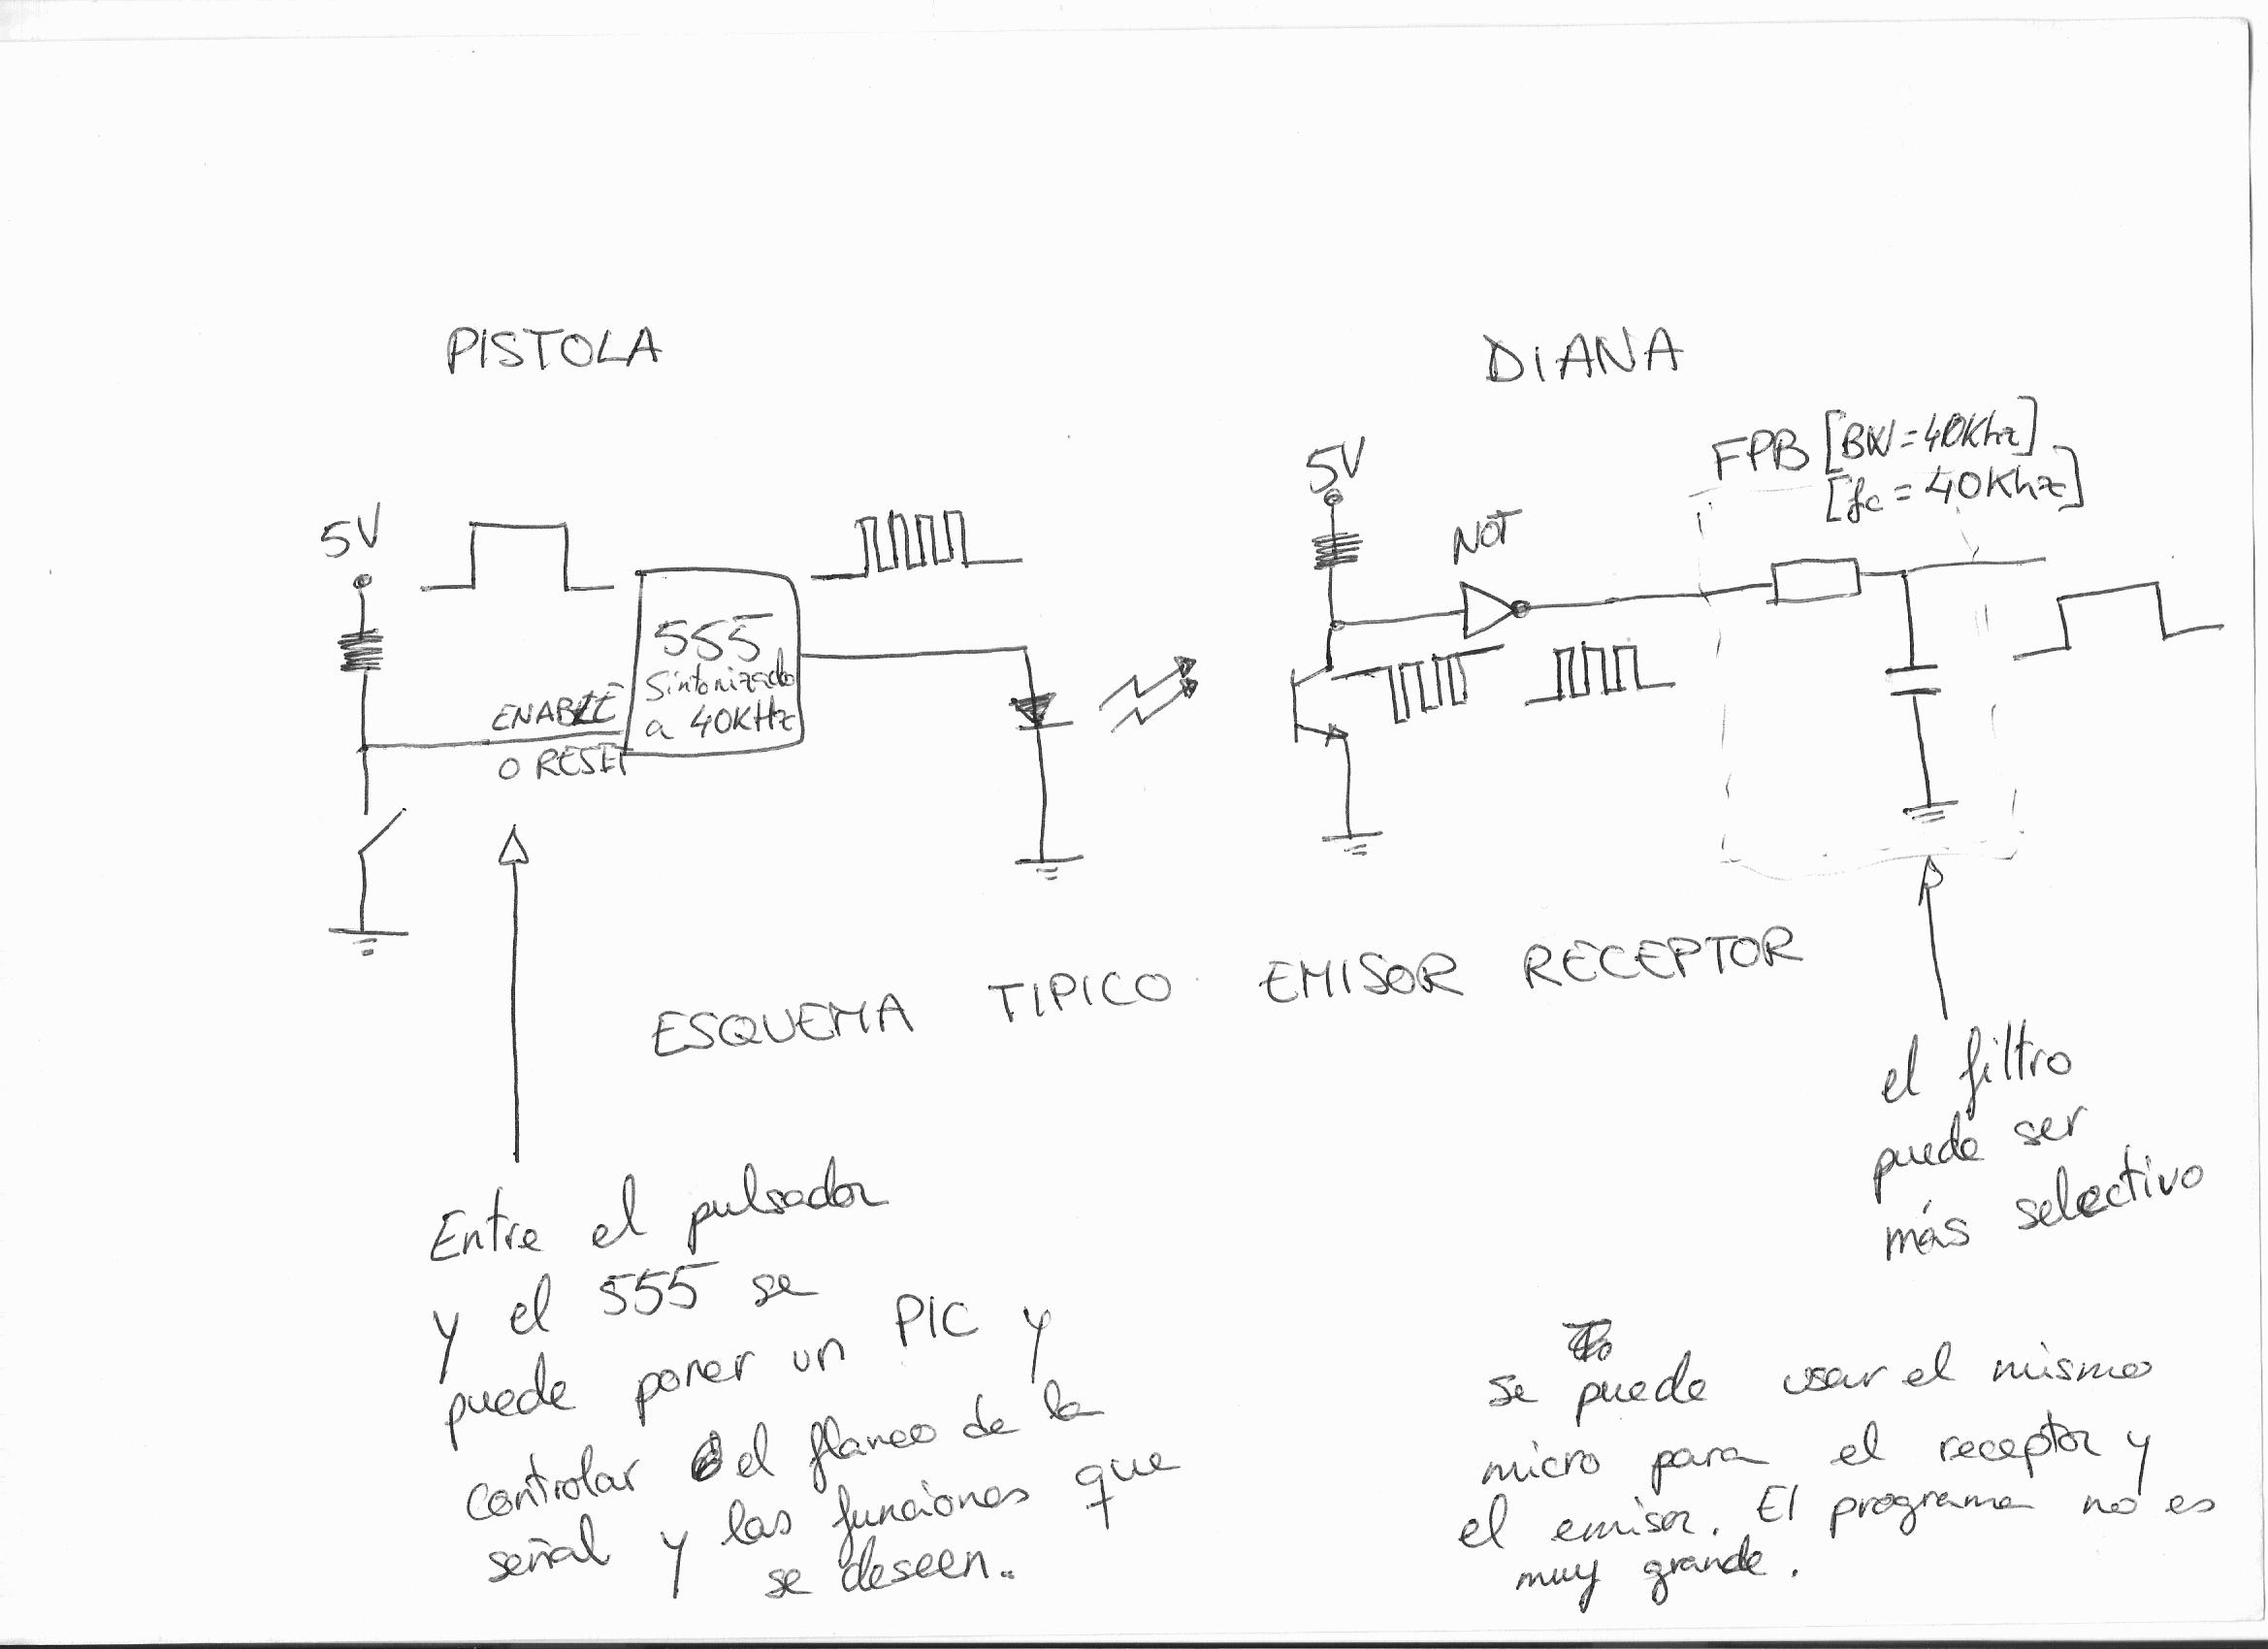 PISTOLA
DIANA
5V
555
Sintonizado
a 40KHz
ENABLE
O RESET
5V
NOT
FPB [BW=40Khz]
[fc=40Khz]
ESQUEMA TIPICO EMISOR RECEPTOR
Entre el pulsador
y el 555 se
puede poner un PIC y
controlar el flanco de la
señal y las funciones que
se deseen..
el filtro
puede ser
más selectivo
se puede usar el mismo
micro para el receptor y
el emisor. El programa no es
muy grande.